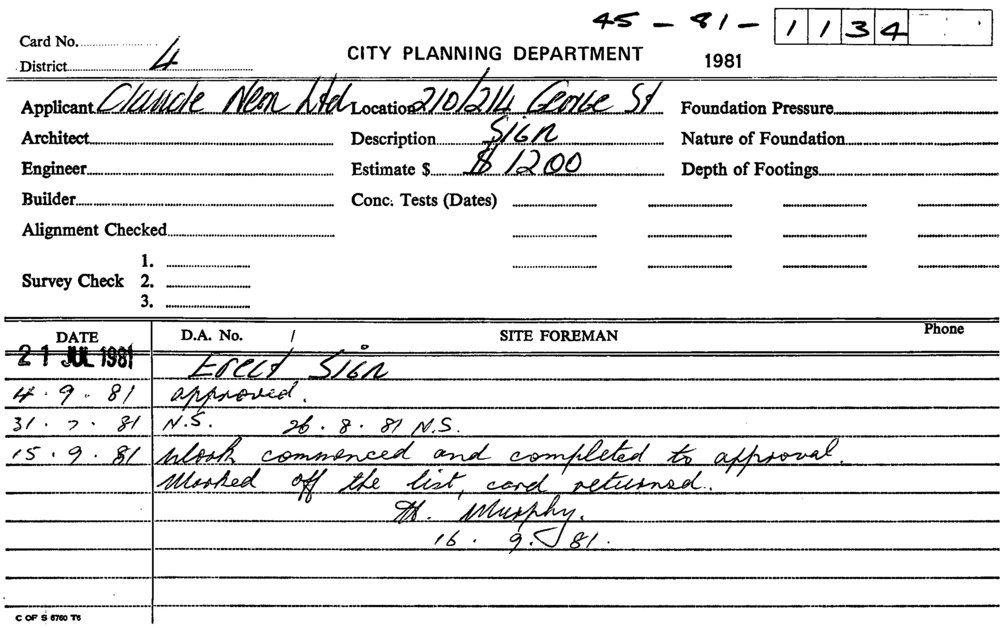 45 - 81 - 1134
Card No.
District 4
CITY PLANNING DEPARTMENT 1981
Applicant Claude Neon Ltd Location 210/214 George St Foundation Pressure
Architect Description Sign Nature of Foundation
Engineer Estimate $ $1200 Depth of Footings
Builder Conc. Tests (Dates)
Alignment Checked
1.
Survey Check 2.
3.
DATE D.A. No. / SITE FOREMAN Phone
21 JUL 1981 Erect Sign
4.9.81 approved.
31.7.81 N.S. 26.8.81 N.S.
15.9.81 Work commenced and completed to approval.
Marked off the list, card returned.
Murphy.
16.9.81.
C OF S 6760 T6